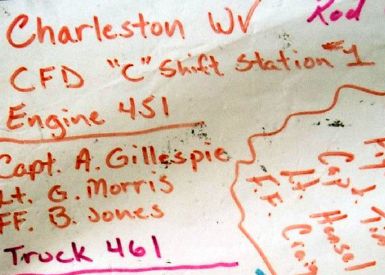 Charleston WV
Rod
CFD "C" Shift Station #1
Engine 451
Capt. A. Gillespie
Lt. G. Morris
FF. B. Jones
Truck 461
Capt.
Lt. Hensel
FF.